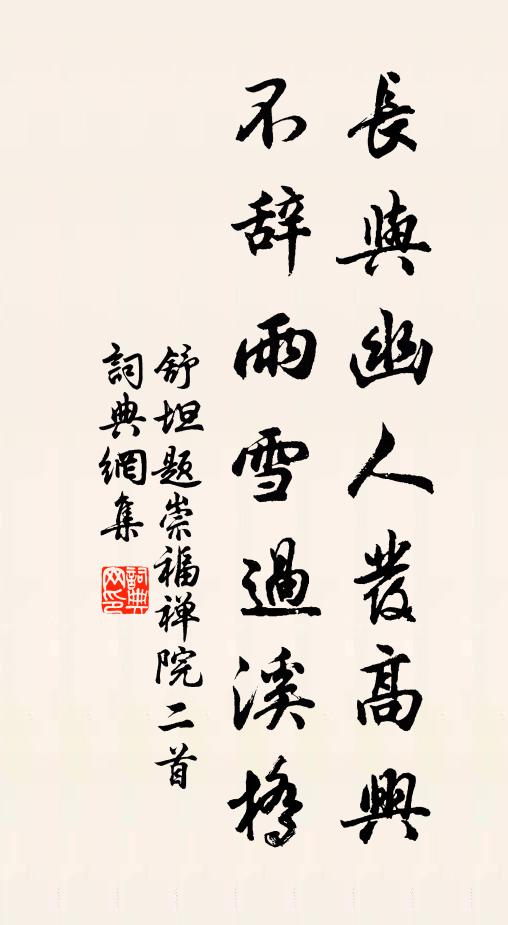 長與幽人發高興
不辞雨雪過溪橋
舒坦題崇福禅院二首
詞典網集
詞典
网印